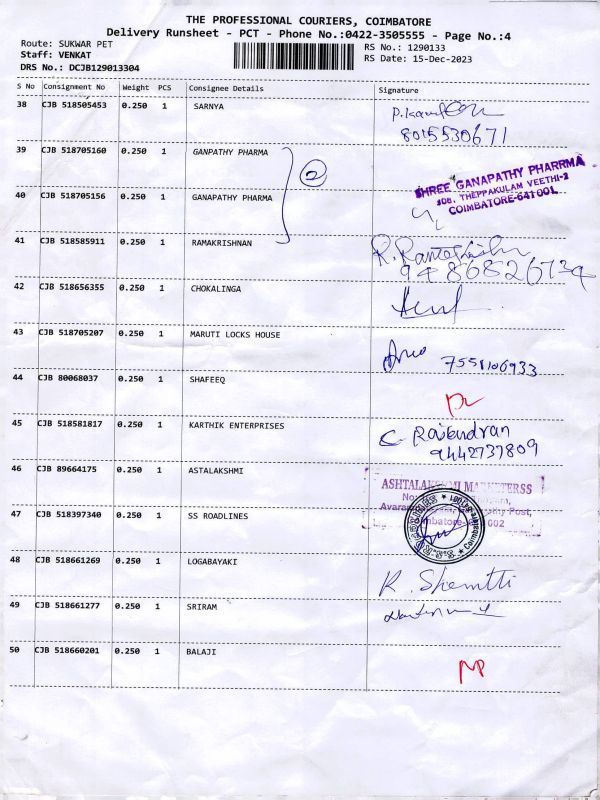 THE PROFESSIONAL COURIERS, COIMBATORE
Delivery Runsheet - PCT - Phone No.:0422-3505555 - Page No.:4
Route: SUKWAR PET
Staff: VENKAT
DRS No.: DCJB129013304
RS No.: 1290133
RS Date: 15-Dec-2023
S No Consignment No Weight PCS Consignee Details Signature
38 CJB 518505453 0.250 1 SARNYA
8015530671
39 CJB 518705160 0.250 1 GANPATHY PHARMA
2
SHREE GANAPATHY PHARRMA
108, THEPPAKULAM VEETHI-2
COIMBATORE-641 001.
40 CJB 518705156 0.250 1 GANAPATHY PHARMA
41 CJB 518585911 0.250 1 RAMAKRISHNAN
42 CJB 518656355 0.250 1 CHOKALINGA
43 CJB 518705207 0.250 1 MARUTI LOCKS HOUSE
7558106933
44 CJB 80068037 0.250 1 SHAFEEQ
45 CJB 518581817 0.250 1 KARTHIK ENTERPRISES
C. Rajendran
9442737809
46 CJB 89664175 0.250 1 ASTALAKSHMI
ASHTALAKSHMI MARKETERSS
47 CJB 518397340 0.250 1 SS ROADLINES
48 CJB 518661269 0.250 1 LOGABAYAKI
49 CJB 518661277 0.250 1 SRIRAM
50 CJB 518660201 0.250 1 BALAJI